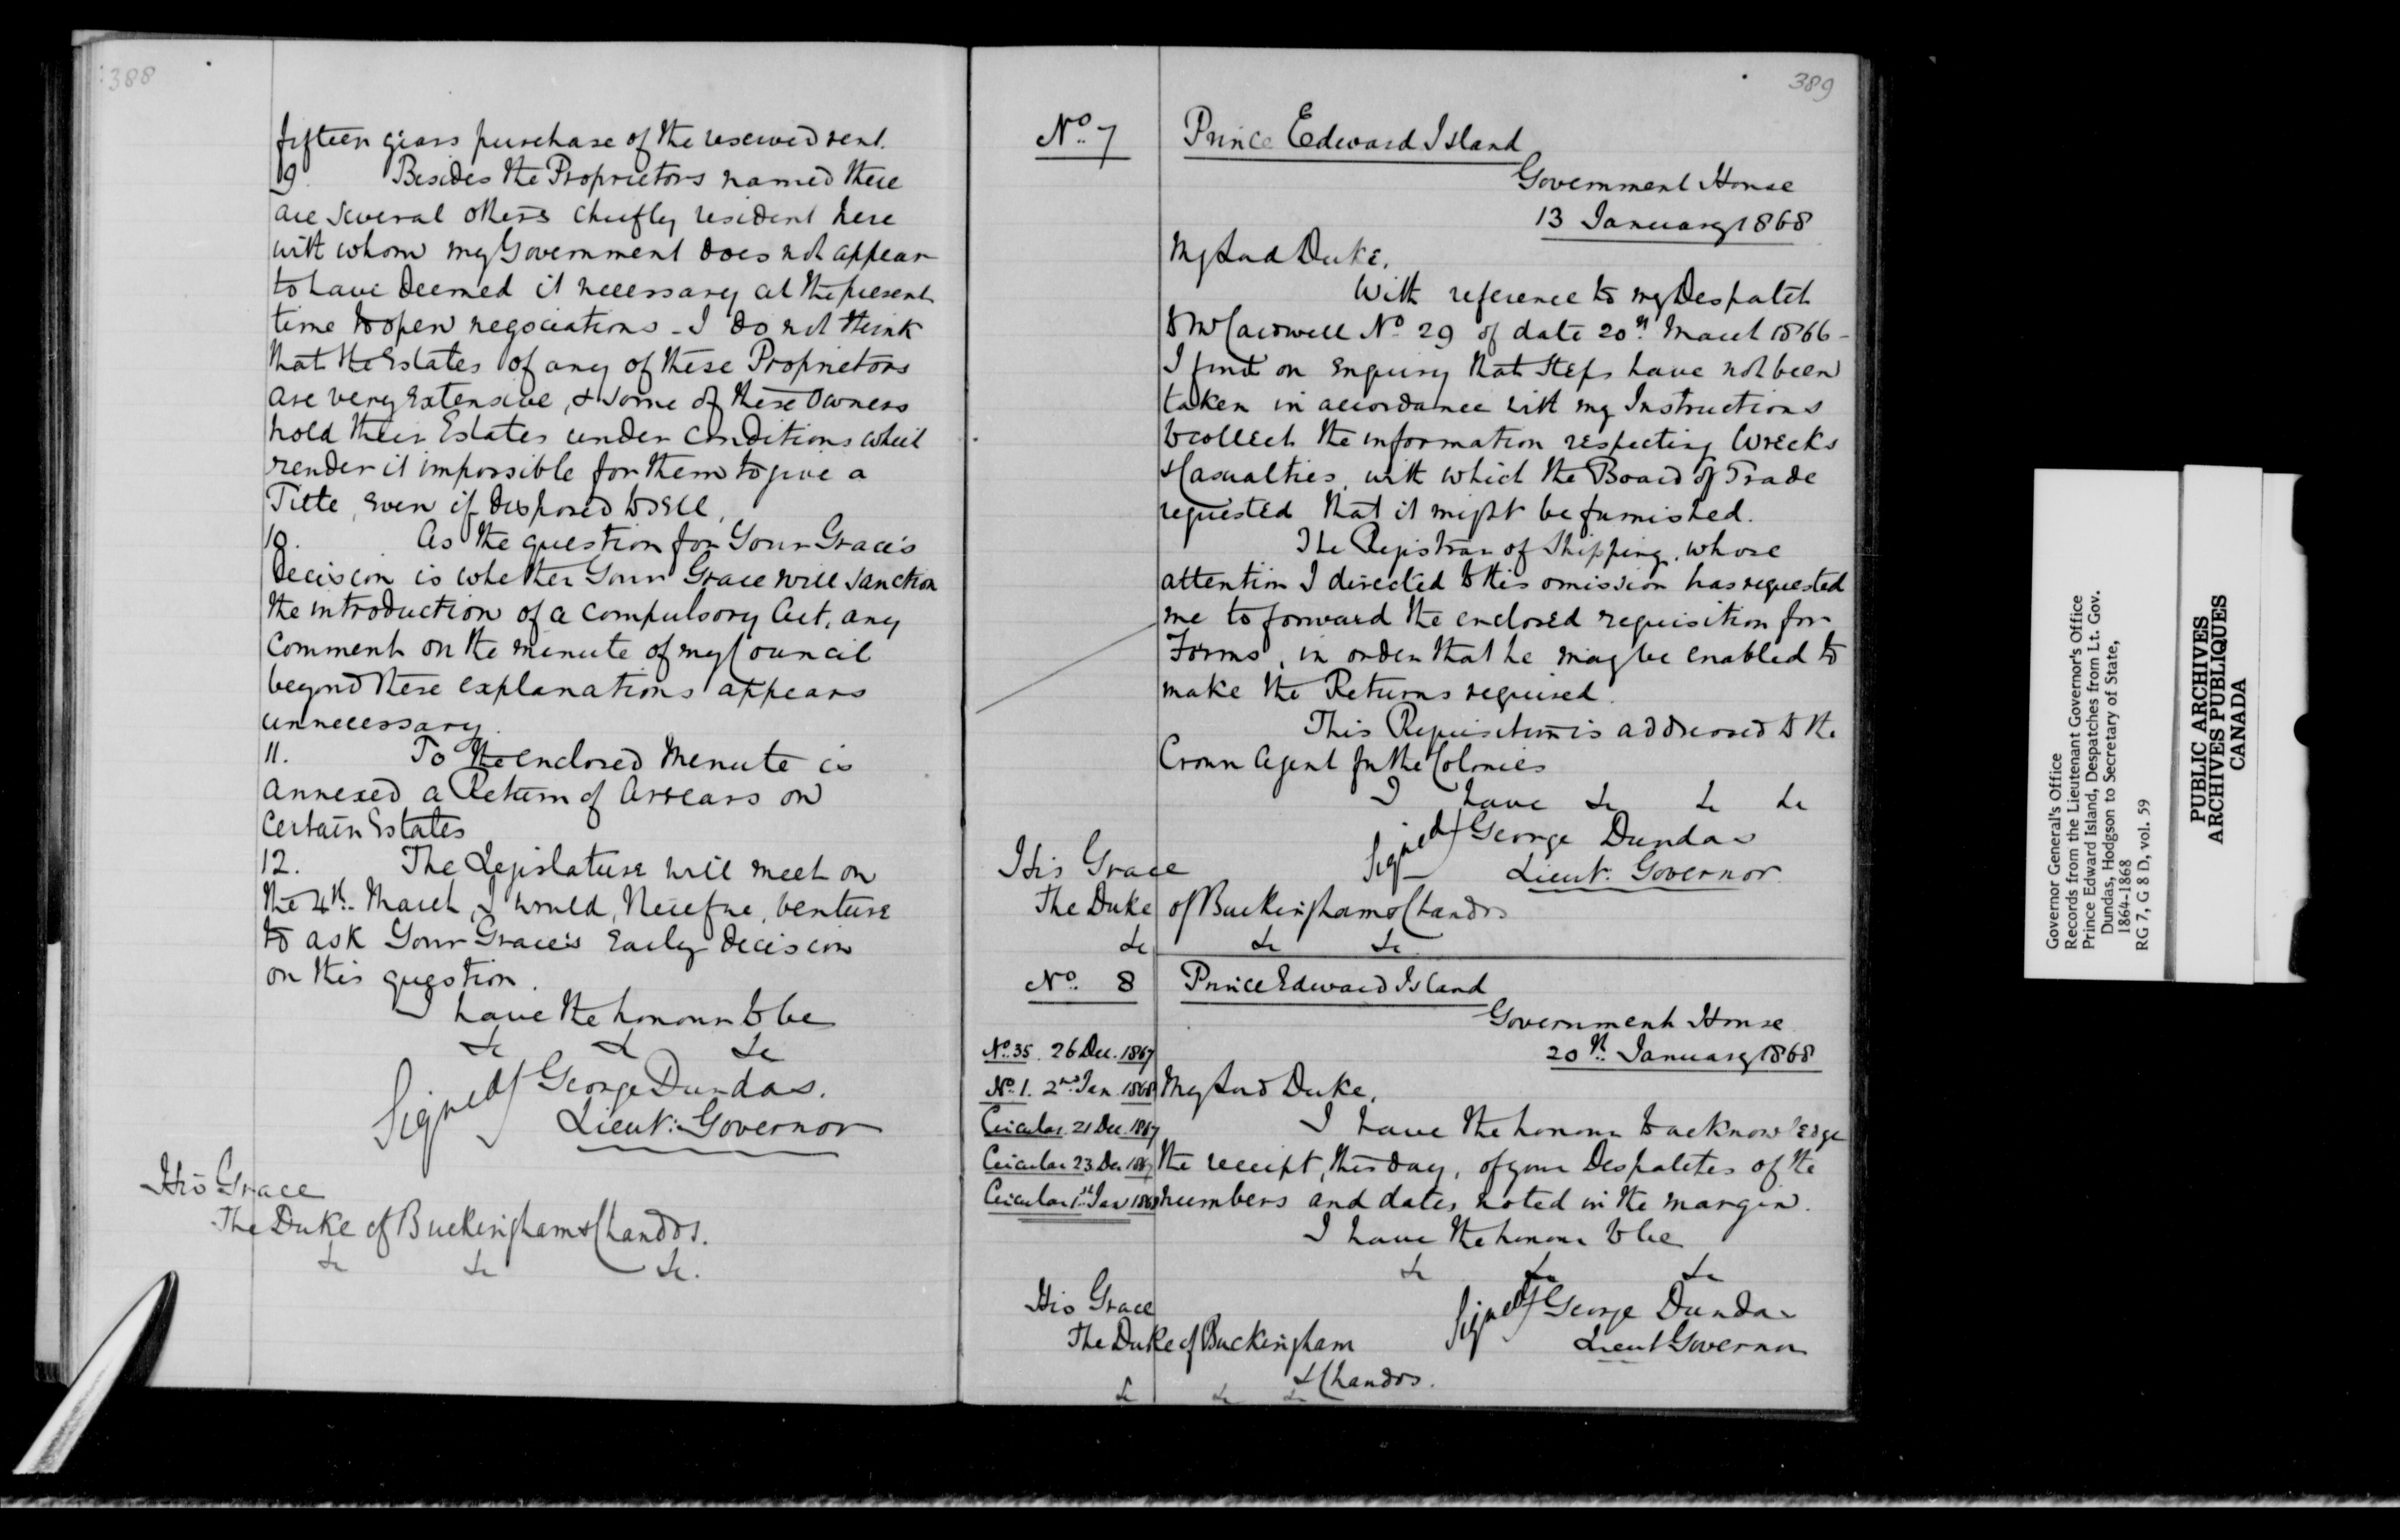 388
fifteen years purchase of the reserved rent.
9. Besides the Proprietors named there
are several others chiefly resident here
with whom my Government does not appear
to have deemed it necessary at the present
time to open negociations - I do not think
that the Estates of any of these Proprietors
are very Extensive, & some of these Owners
hold their Estates under conditions which
render it impossible for them to give a
Title, even if disposed to sell,
10. As the question for Your Grace's
decision is whether Your Grace will sanction
the introduction of a compulsory Act, any
comment on the minute of my Council
beyond these explanations appears
unnecessary.
11. To the enclosed Minute is
annexed a Return of Arrears on
Certain Estates
12. The Legislature will meet on
the 4th March, I would, therefore, venture
to ask Your Grace's Early decision
on this question.
I have the honour to be
&c &c &c
Signed/ George Dundas.
Lieut: Governor
His Grace
The Duke of Buckingham & Chandos.
&c &c &c.
389
No. 7 Prince Edward Island
Government House
13 January 1868
My Lord Duke,
With reference to my Despatch
to Mr Cardwell No 29 of date 20th March 1866 -
I find on Enquiry that steps have not been
taken in accordance with my Instructions
to collect the information respecting Wrecks
& Casualties, with which the Board of Trade
requested that it might be furnished.
The Registrar of Shipping, whose
attention I directed to this omission has requested
me to forward the enclosed requisition for
Forms, in order that he may be enabled to
make the Returns required.
This Requisition is addressed to the
Crown Agent for the Colonies
I have &c &c &c
Signed/ George Dundas
Lieut. Governor.
His Grace
The Duke of Buckingham & Chandos
&c &c &c
No. 8 Prince Edward Island
Government House
20th January 1868
No. 35. 26 Dec. 1867
No. 1. 2nd Jan 1868
Circular 21 Dec. 1867
Circular 23 Dec 1867
Circular 1st Jan 1868
My Lord Duke,
I have the honour to acknowledge
the receipt, this day, of your Despatches of the
numbers and dates noted in the margin.
I have the honour to be
&c &c &c
Signed/ George Dundas
Lieut Governor
His Grace
The Duke of Buckingham
& Chandos.
&c &c &c
Governor General's Office
Records from the Lieutenant Governor's Office
Prince Edward Island, Despatches from Lt. Gov.
Dundas, Hodgson to Secretary of State,
1864-1868
RG 7, G 8 D, vol. 59
PUBLIC ARCHIVES
ARCHIVES PUBLIQUES
CANADA